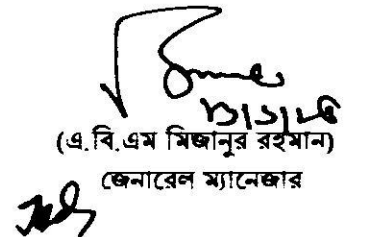 (এ.বি.এম মিজানুর রহমান)
জেনারেল ম্যানেজার